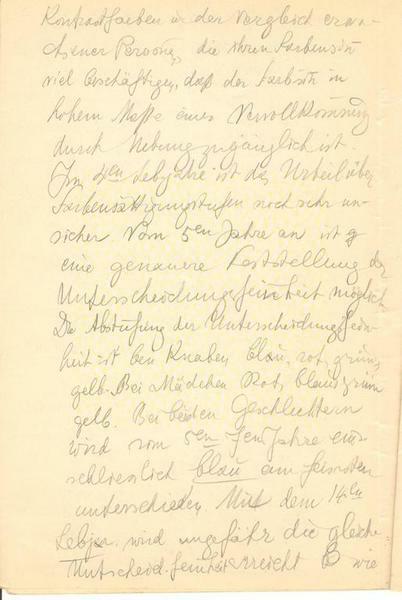 Kontrastfarben u. der Vergleich erwa-
chsener Personen, die ihren Farbensinn
viel beschäftigen, daß der Farbsinn in
hohem Maße eines Vervollkommnung
durch Uebung zugänglich ist.
Im 4en Lebjahre ist das Urteil über
Farbensättigungsstufen noch sehr un-
sicher. Vom 5en Jahre an ist
eine genauere Feststellung der
Unterscheidungsfeinheit möglich
Die Abstufung der Unterscheidungsfein-
heit ist bei Knaben blau, rot, grün,
gelb. Bei Mädchen Rot, blau, grün
gelb. Bei beiden Geschlechtern
wird vom 5en Jahre ein-
schliesslich blau am feinsten
unterschieden. Mit dem 14en
Lebja. wird ungefähr die gleiche
Untscheid.feinheit erreicht wie